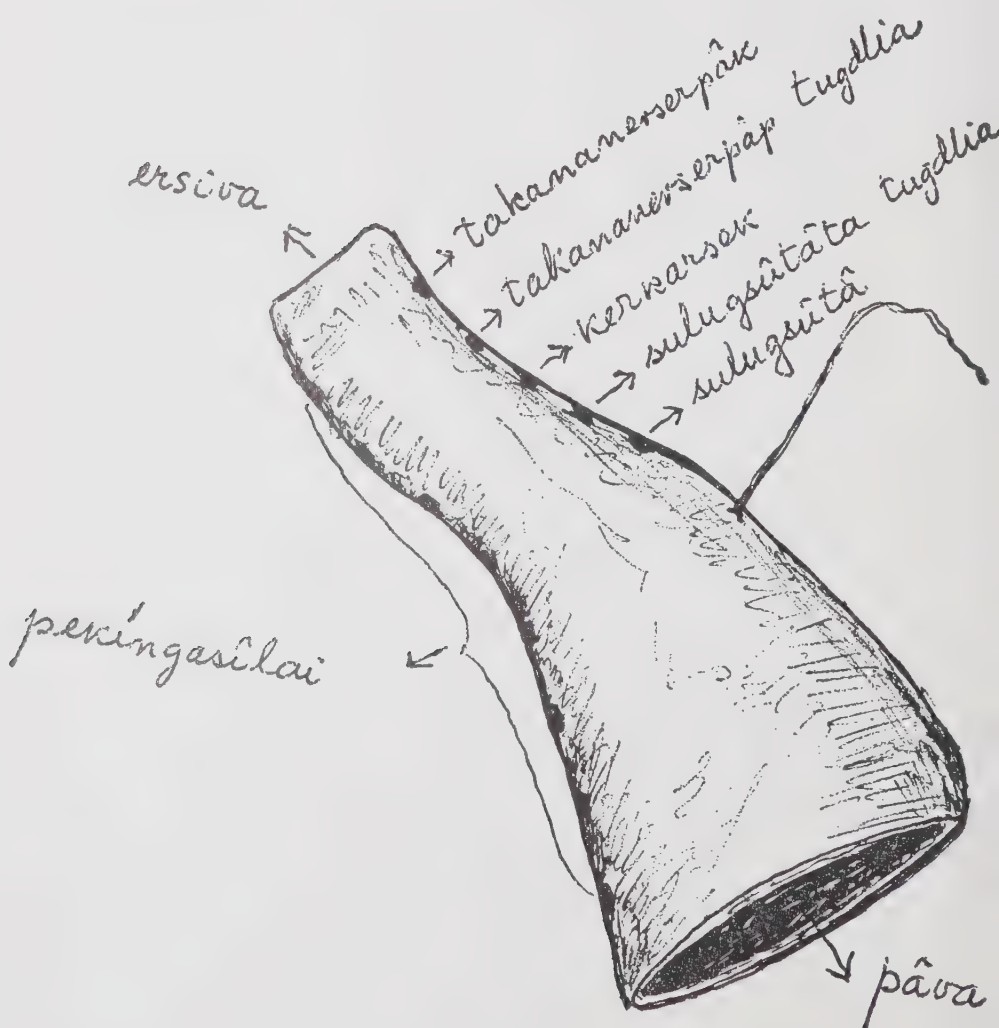 takananerserpâk
takananerserpâp tugdlia
ersiva
kerkarsek
sulugsûtâta tugdlia
sulugsûtâ
pekíngasîlai
pâva